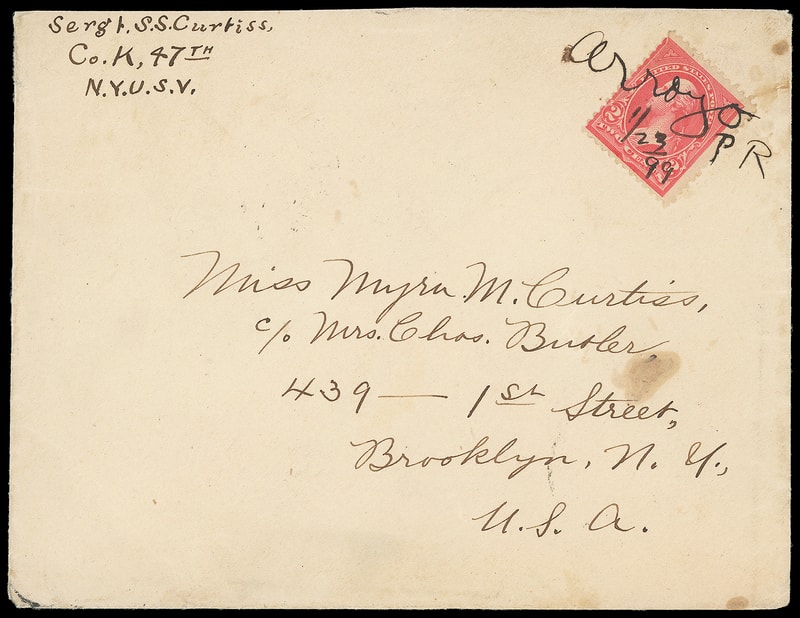 Sergt. S.S. Curtiss,
Co. K, 47TH
N.Y.U.S.V.
Arroyo
P R
1/23
99
UNITED STATES
2
2
Miss Myra M. Curtiss,
c/o Mrs. Chas. Butler,
439 — 1st Street,
Brooklyn, N. Y.,
U. S. A.